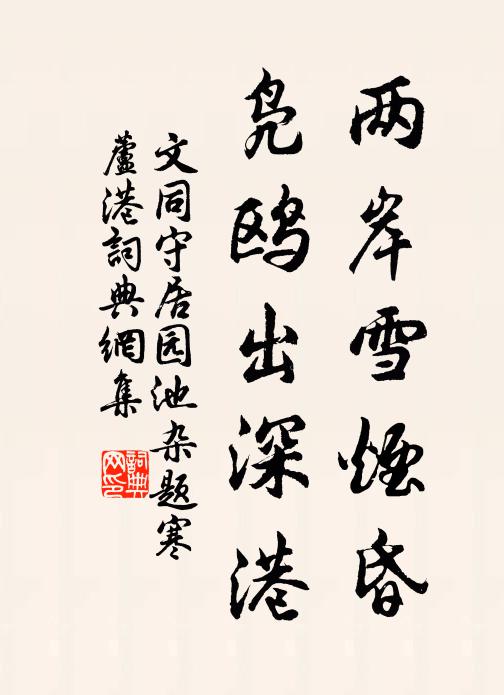 两岸雪煙昏
凫鸥出深港
文同守居园池杂题寒
蘆港詞典網集
詞典
网印